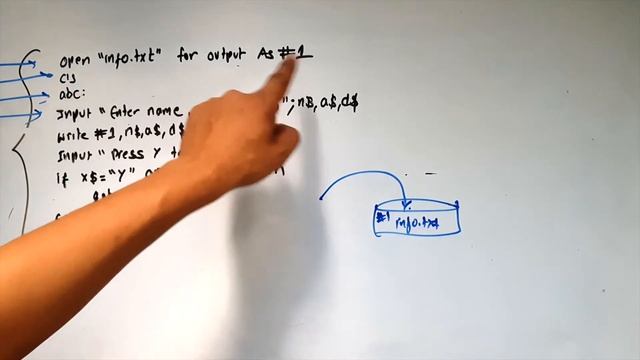 open "info.txt" for output As #1
cls
abc:
Input "Enter name "; n$, a$, d$
write #1, n$, a$, d$
Input "Press Y t
if x$="Y" o
#1 info.txt